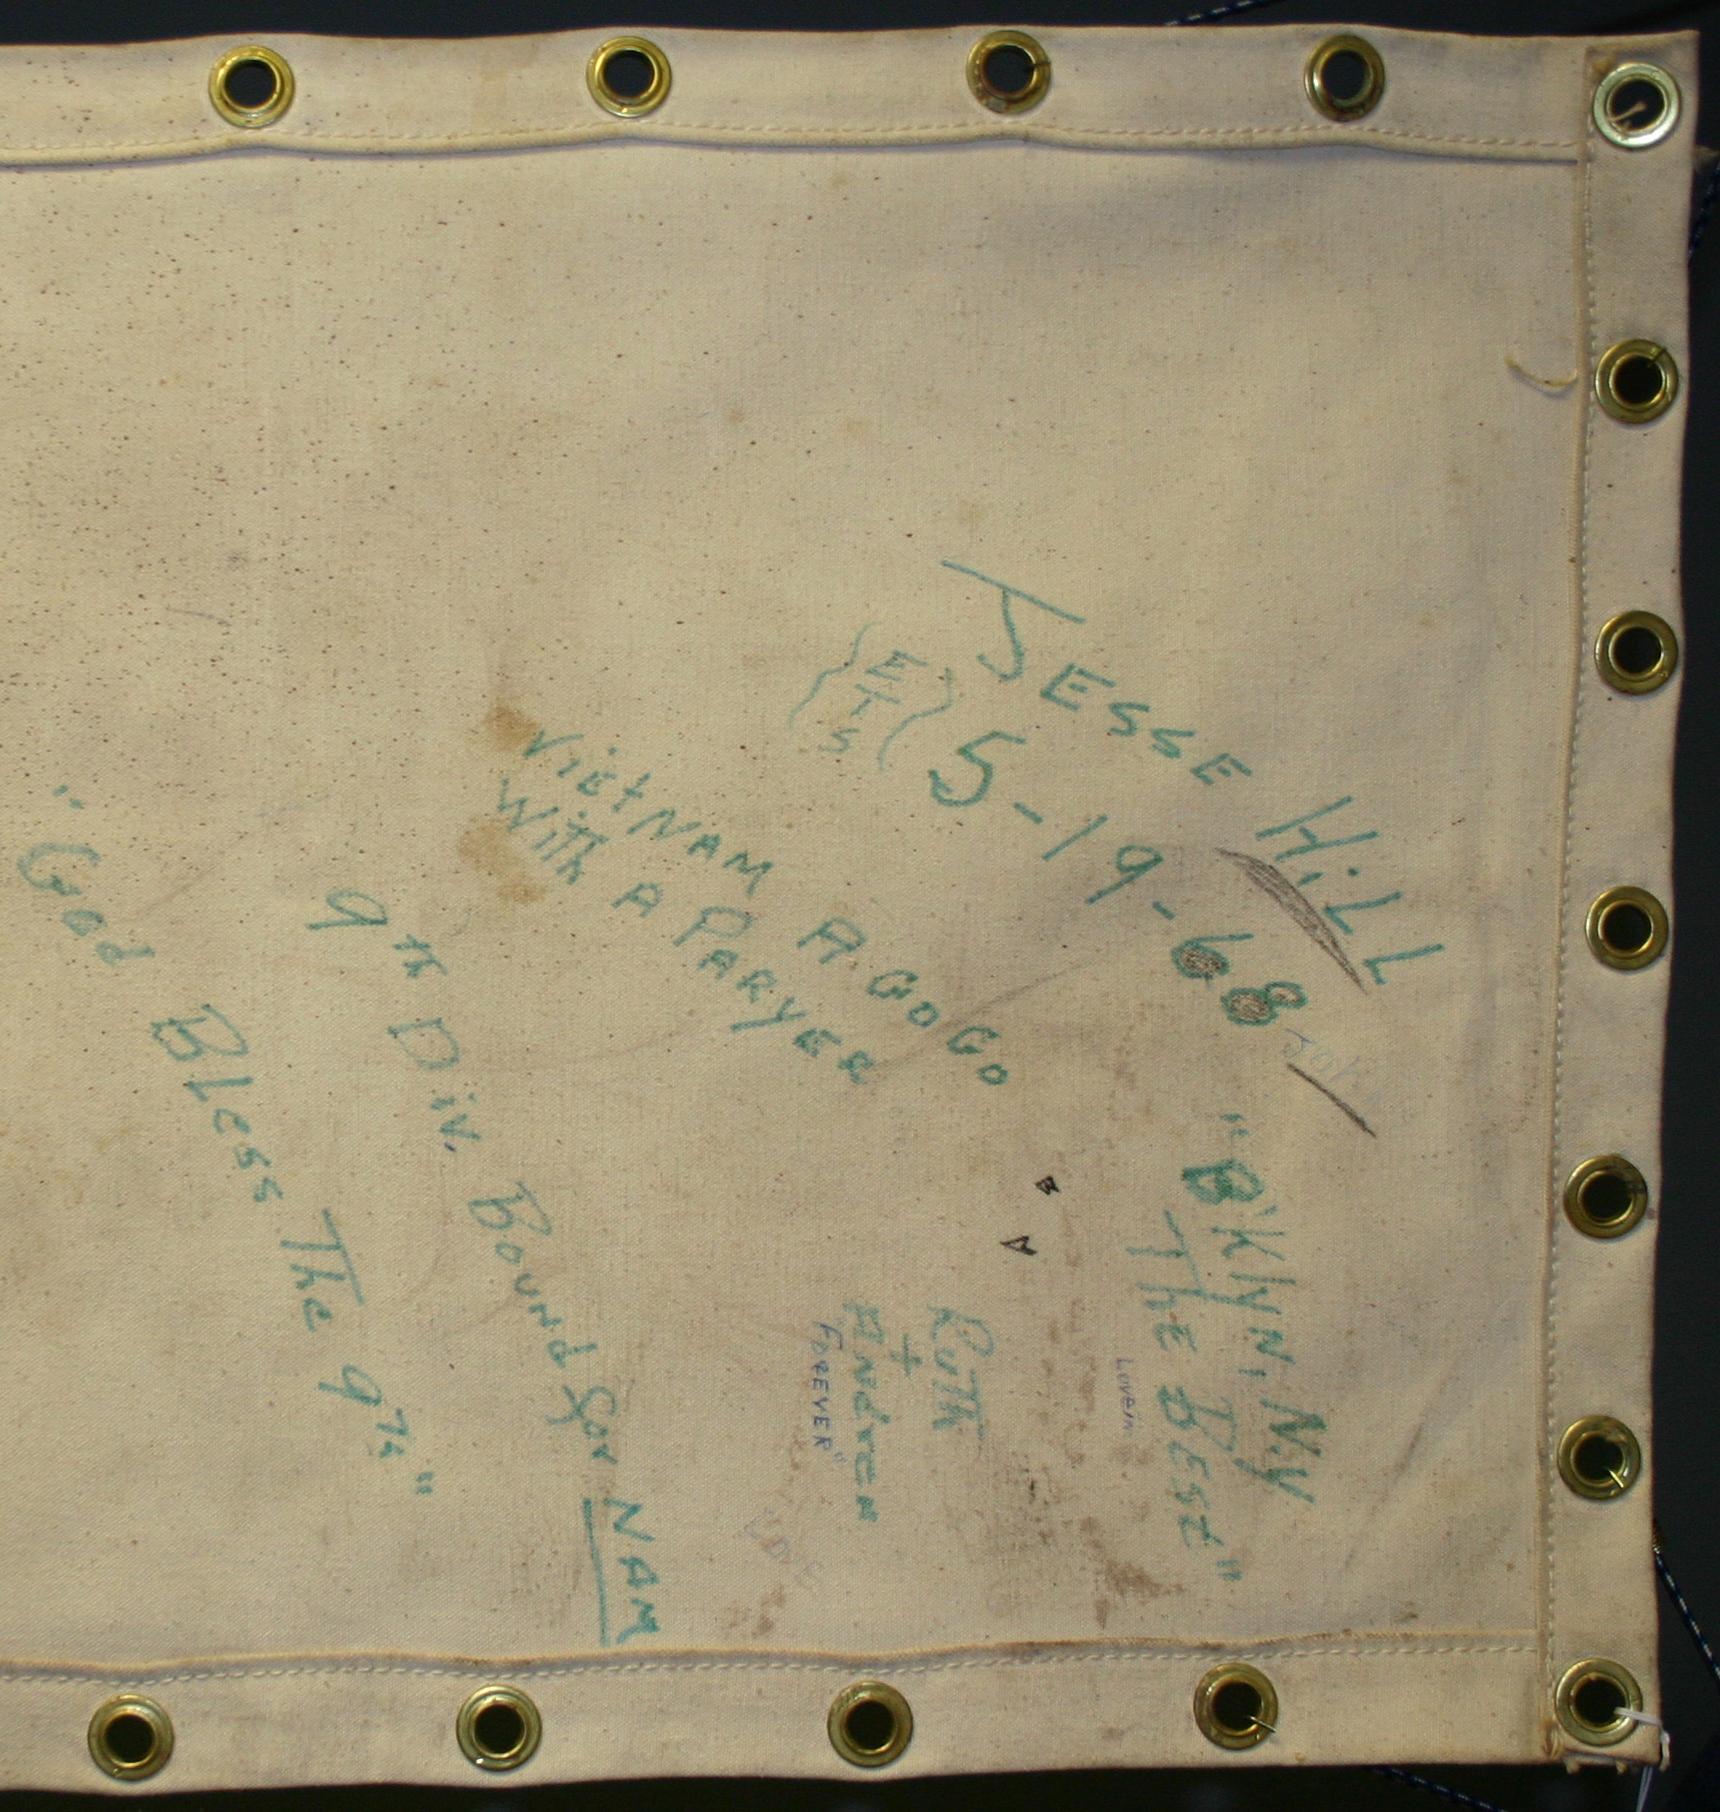 JESSE HiLL
{E
T
S} 5-19-68
VietNAM A GO GO
With A PARYER
9th Div. Bound for NAM
"God Bless The 9Th"
"BKlyn, N.y
The Best"
Lovern
Ruth
+
Andrea
FOREVER"